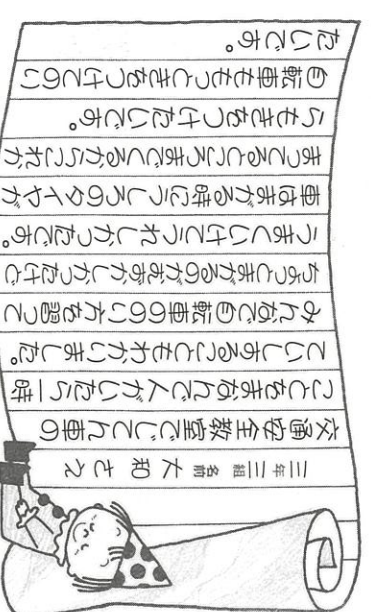 三年三組 名前 大和 さえ
交通安全教室でじてん車の
ことをまなんで人がいたら一時
ていしすることもわかりました。
みんなで自転車ののり方を習って
ちょっとまがるのがむずかしかったけど
うまくいけてうれしかったです。
車はまがる時にうしろのタイヤが
まってるところまでくるからこれか
らもきをつけたいです。
自転車ももっときをつけてのり
たいです。